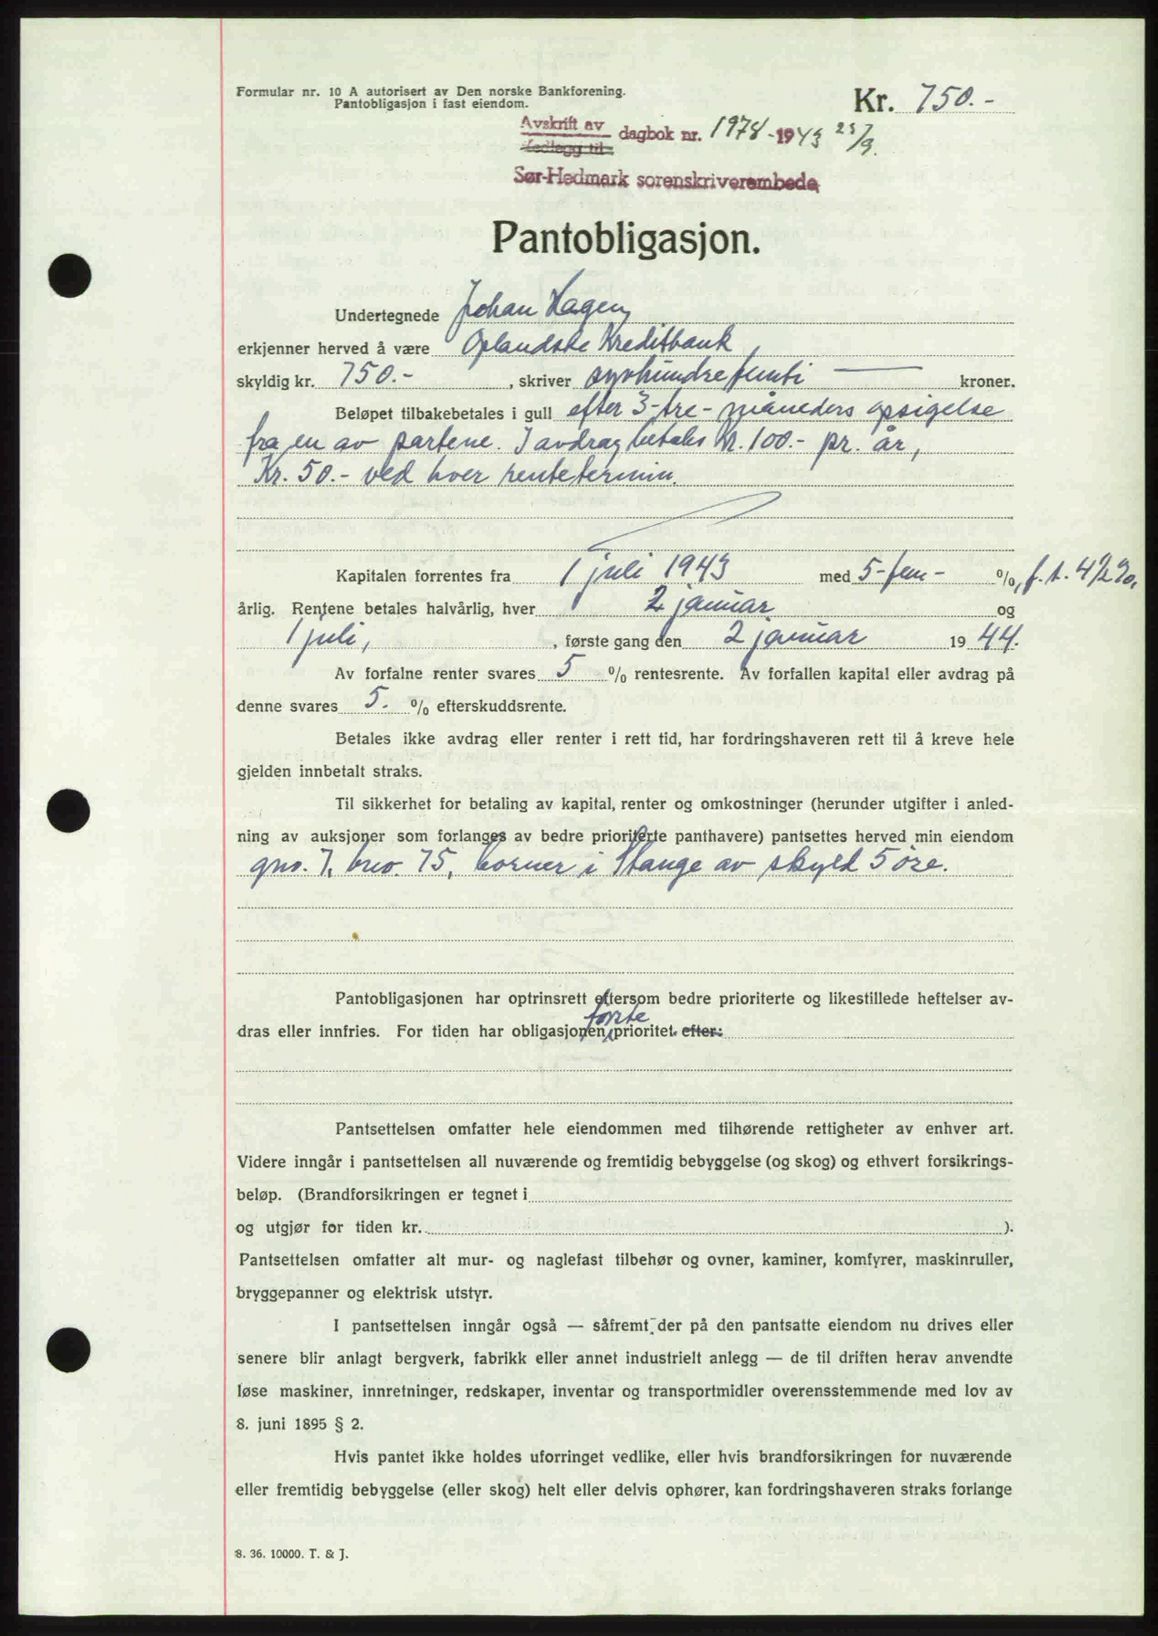 Formular nr. 10 A autorisert av Den norske Bankforening.
Pantobligasjon i fast eiendom.
Kr. 750.-
Avskrift av
Vedlegg til
dagbok nr. 1978-1943 25/9.
Sør-Hedmark sorenskriverembede
Pantobligasjon.
Undertegnede Johan Hagen,
erkjenner herved å være Oplandske Kreditbank
skyldig kr. 750.- , skriver syvhundrefemti — kroner.
Beløpet tilbakebetales i gull efter 3-tre- måneders opsigelse
fra en av partene. I avdrag betales Kr. 100.- pr. år,
Kr. 50.- ved hver rentetermin.
Kapitalen forrentes fra 1 juli 1943 med 5-fem- %, f.t. 4½%,
årlig. Rentene betales halvårlig, hver 2 januar og
1 juli, , første gang den 2 januar 1944.
Av forfalne renter svares 5 % rentesrente. Av forfallen kapital eller avdrag på
denne svares 5. % efterskuddsrente.
Betales ikke avdrag eller renter i rett tid, har fordringshaveren rett til å kreve hele
gjelden innbetalt straks.
Til sikkerhet for betaling av kapital, renter og omkostninger (herunder utgifter i anled-
ning av auksjoner som forlanges av bedre prioriterte panthavere) pantsettes herved min eiendom
gnr. 7, bnr. 75, i Stange av skyld 5 øre.
Pantobligasjonen har optrinsrett eftersom bedre prioriterte og likestillede heftelser av-
første
dras eller innfries. For tiden har obligasjonen prioritet efter:
Pantsettelsen omfatter hele eiendommen med tilhørende rettigheter av enhver art.
Videre inngår i pantsettelsen all nuværende og fremtidig bebyggelse (og skog) og ethvert forsikrings-
beløp. (Brandforsikringen er tegnet i
og utgjør for tiden kr. ).
Pantsettelsen omfatter alt mur- og naglefast tilbehør og ovner, kaminer, komfyrer, maskinruller,
bryggepanner og elektrisk utstyr.
I pantsettelsen inngår også — såfremt der på den pantsatte eiendom nu drives eller
senere blir anlagt bergverk, fabrikk eller annet industrielt anlegg — de til driften herav anvendte
løse maskiner, innretninger, redskaper, inventar og transportmidler overensstemmende med lov av
8. juni 1895 § 2.
Hvis pantet ikke holdes uforringet vedlike, eller hvis brandforsikringen for nuværende
eller fremtidig bebyggelse (eller skog) helt eller delvis ophører, kan fordringshaveren straks forlange
8. 36. 10000. T. & J.